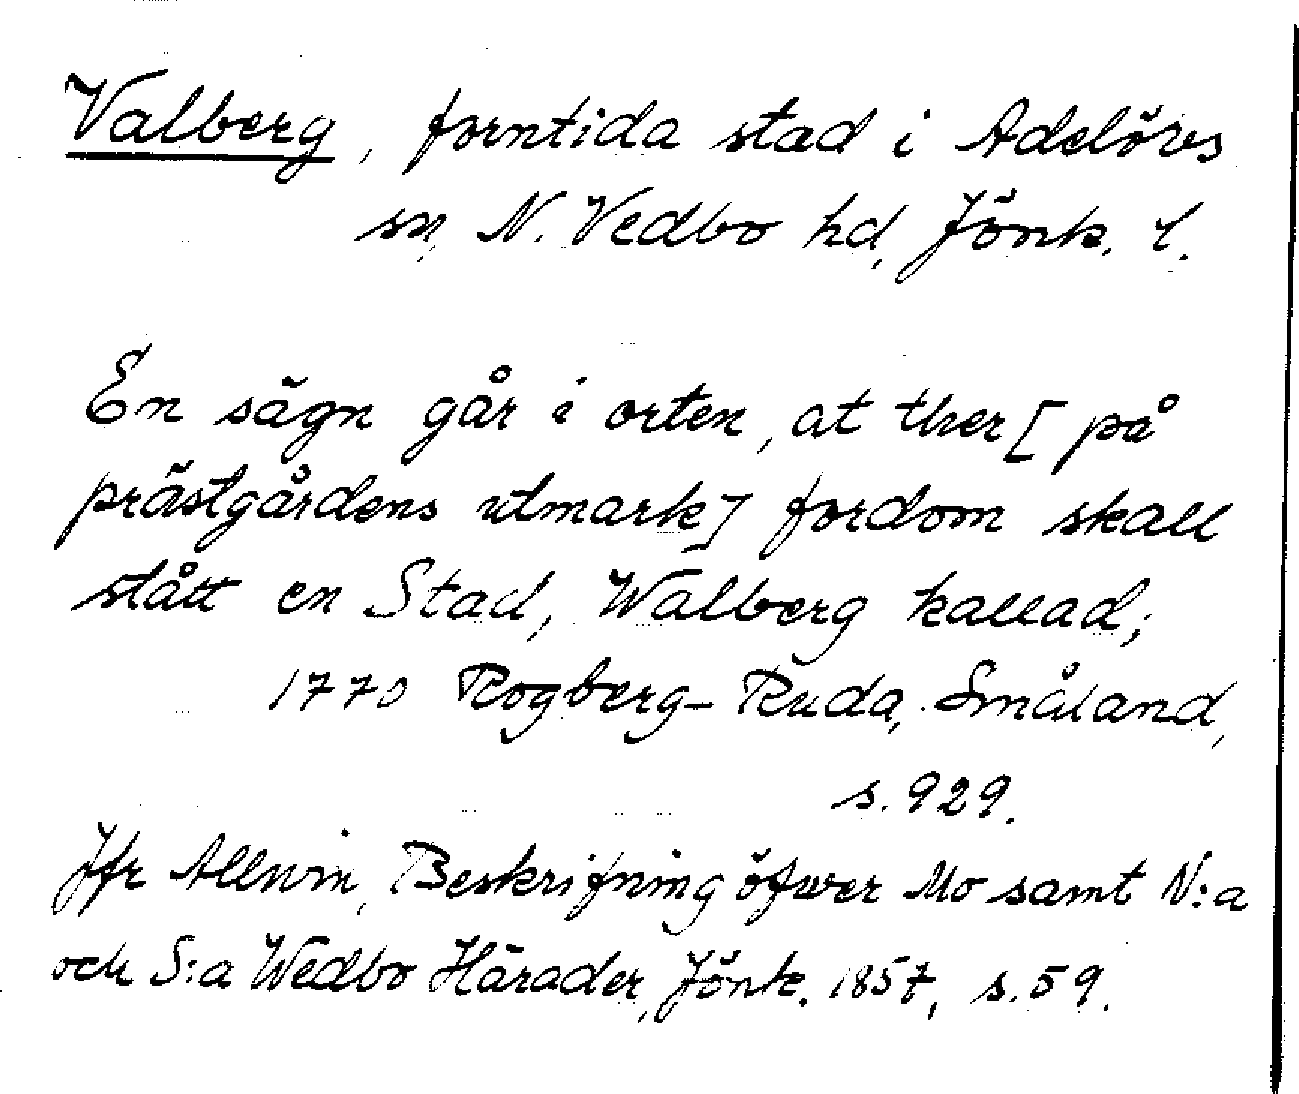 Valberg, forntida stad i Adelövs
sn, N. Vedbo hd, Jönk. l.
En sägn går i orten, at ther [ på
prästgårdens utmark] fordom skall
stått en Stad, Walberg kallad;
1770 Rogberg-Ruda, Småland,
s. 929.
Jfr Allwin, Beskrifning öfwer Mo samt N:a
och S:a Wedbo Härader, Jönk. 1857, s. 59.